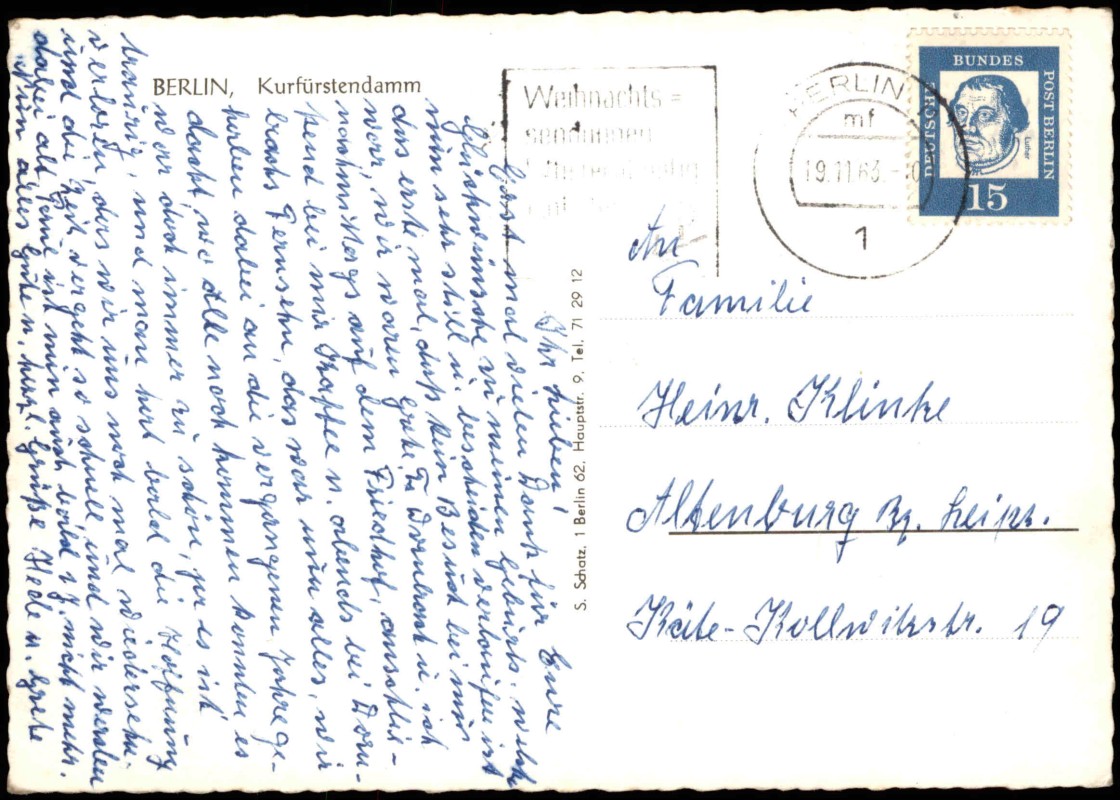 BERLIN, Kurfürstendamm
Ihr Lieben!
Ganz mal vielen Dank für Eure
Glückwünsche zu meinem Geburts. welch
nun sehr still u. bescheiden verlaufen ist
das erste mal, daß kein Besuch bei mir
war, wir waren Grete, Fr. Dornbont u. ich
nachmittags auf dem Friedhof, anschlie-
ßend bei mir Kaffee u. abends bei Dorn-
Fernsehn, das war nun alles, wir
haben dabei an die vergangenen Jahre ge-
dacht, wo alle noch kommen konnten es
war doch immer zu schön, ja es ist
traurig, und man hat bald die Hoffnung
verloren, das wir uns noch mal wiedersehn.
und die Zeit vergeht so schnell und wir werden
dabei alt, ist nun auch bald 1 J. nicht mehr.
Nun alles Gute u. herzl. Grüße Hede u. Grete
S. Schatz, 1 Berlin 62, Hauptstr. 9, Tel. 71 29 12
Weihnachts=
sendungen
BERLIN
mf
19.11.63.
1
DEUTSCHE
BUNDES
POST BERLIN
Luther
15
An
Familie
Heinr. Klinke
Altenburg Bz. Leipz.
Käte-Kollwitzstr. 19